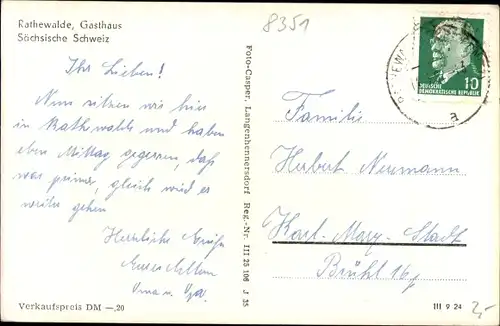 Rathewalde, Gasthaus
Sächsische Schweiz
8351
Ihr Lieben!
Nun sitzen wir hier
in Rathewalde und haben
eben Mittag gegessen, daß
war prima, gleich wird es
weiter gehen
Herzliche Grüße
Oma u. Opa
Verkaufspreis DM —,20
Foto-Casper, Langenhennersdorf Reg.-Nr. III 25 106 J 35
10
DEUTSCHE
DEMOKRATISCHE REPUBLIK
a
Familie
Herbert Neumann
Karl-Marx-Stadt
Brühl 16
III 9 24
2,-